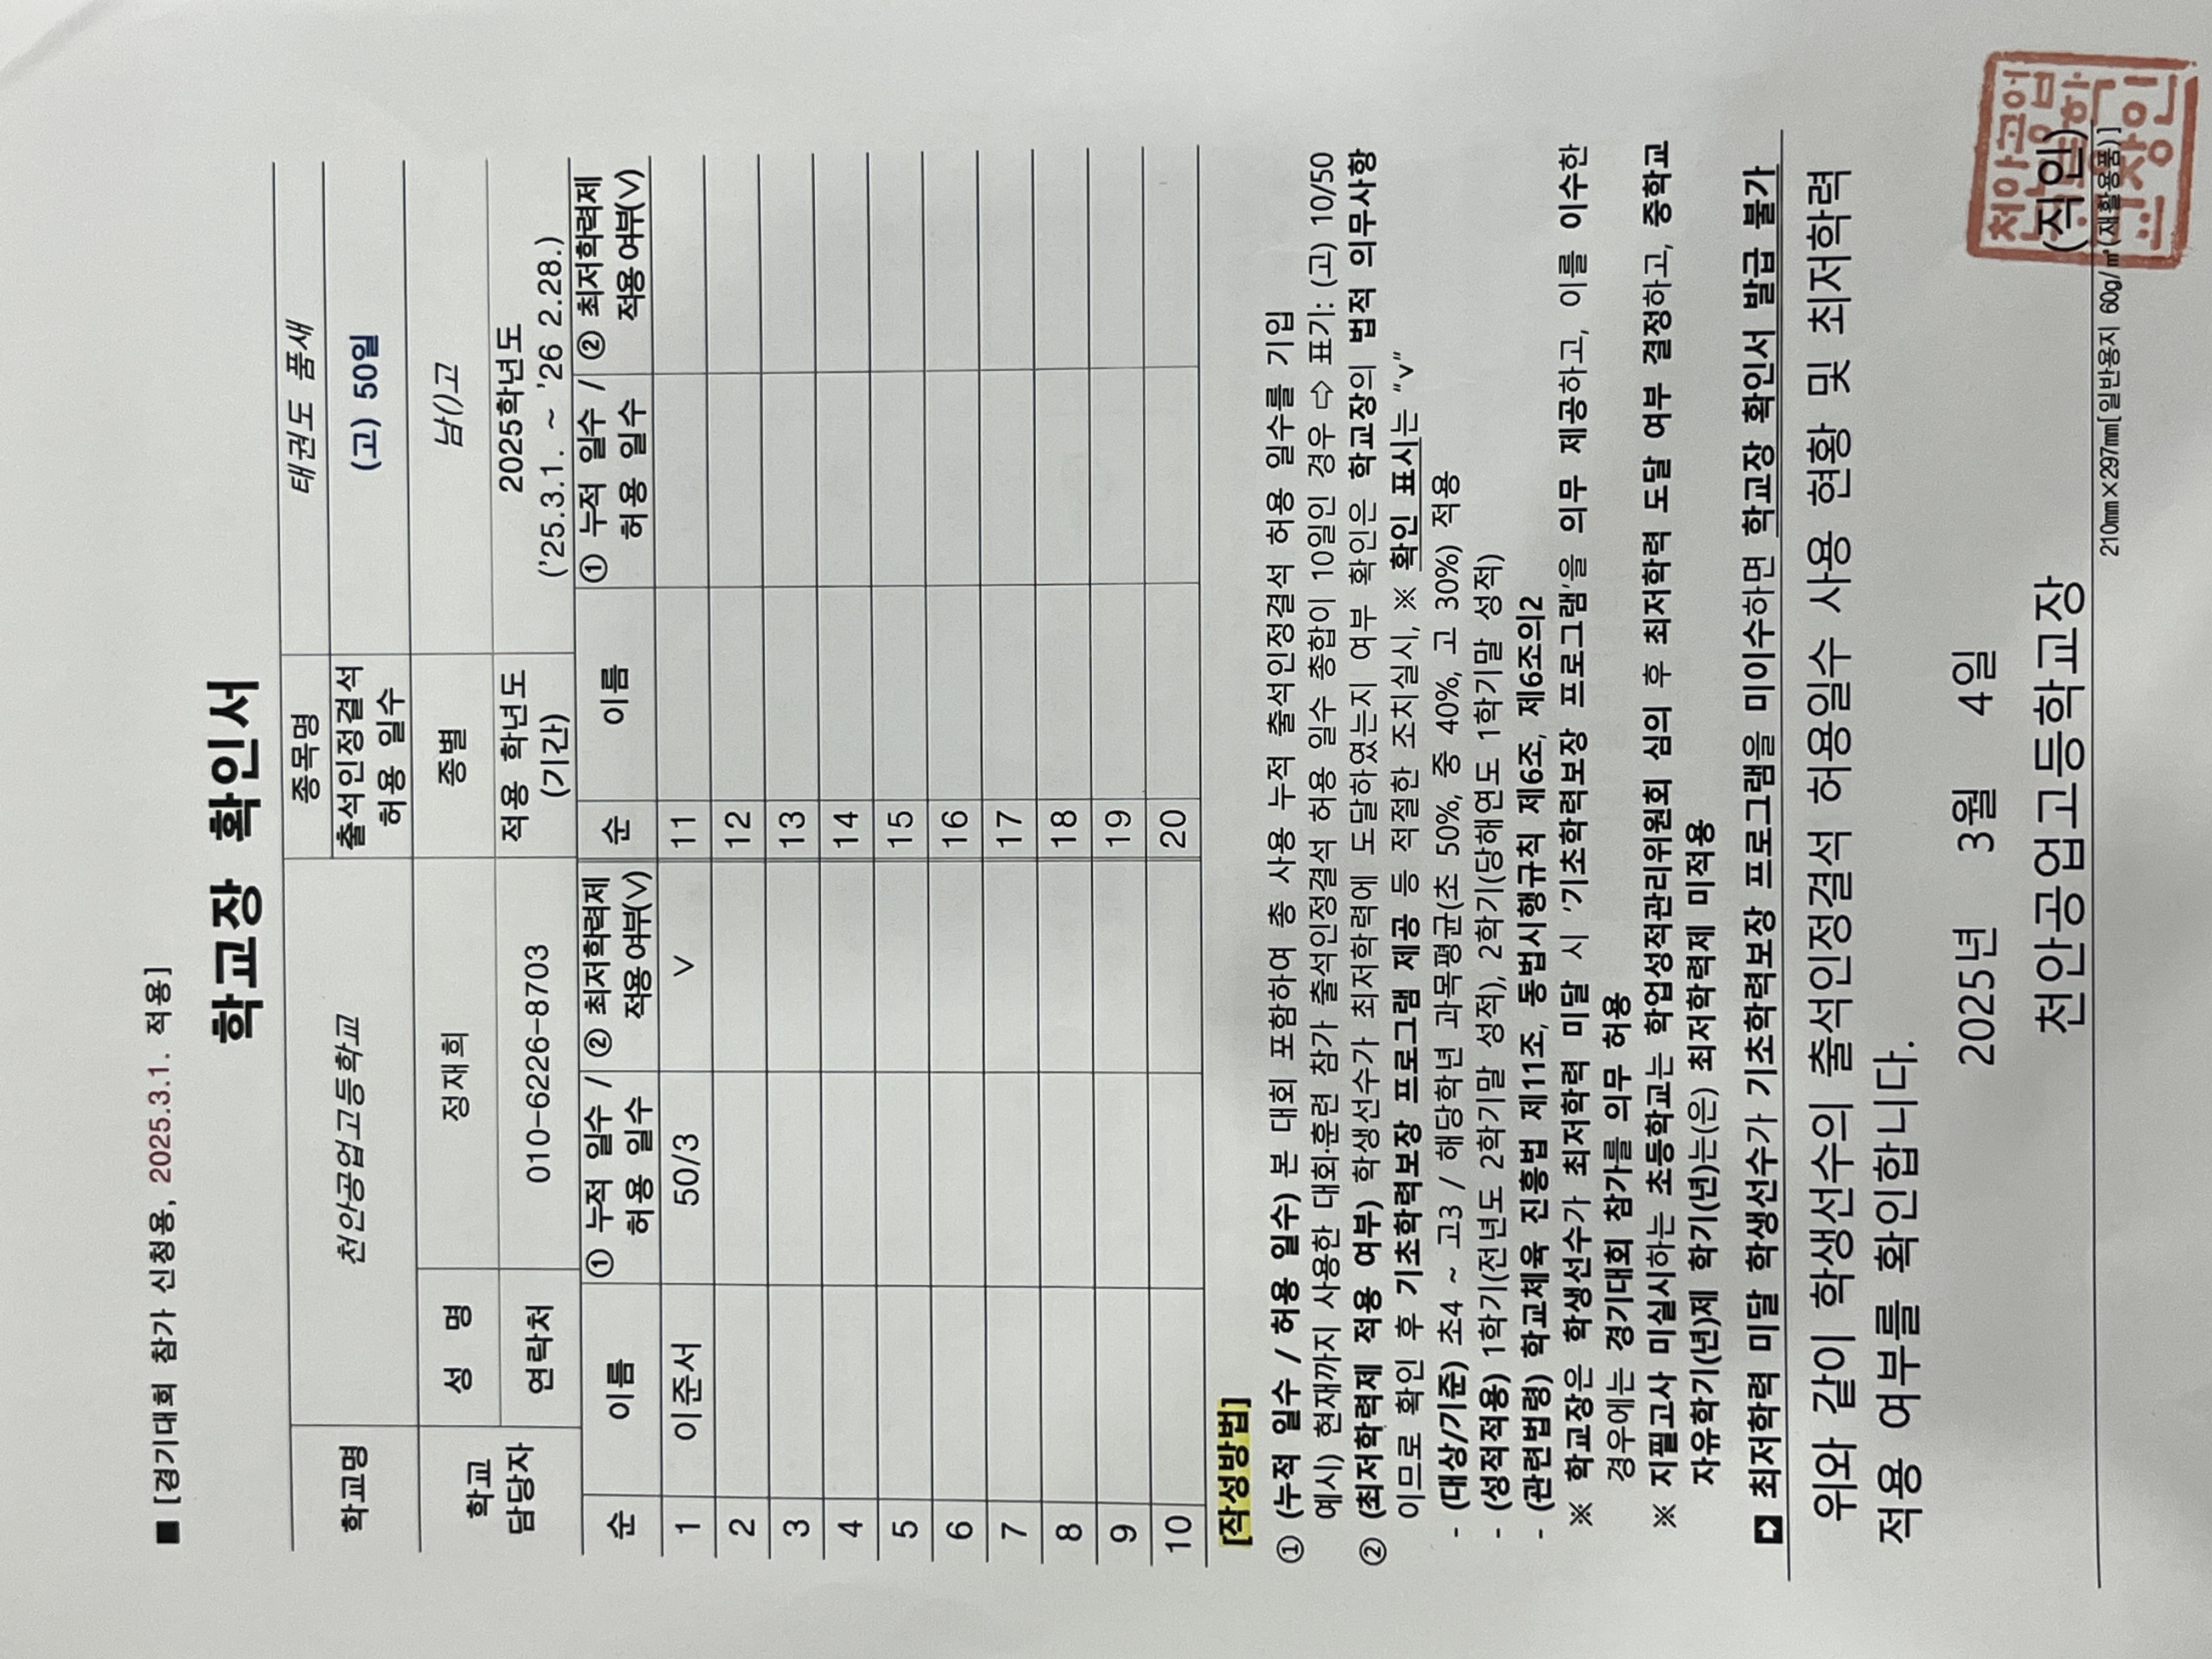 ■ [경기대회 참가 신청용, 2025.3.1. 적용]
학교장 확인서
학교명 천안공업고등학교 종목명 태권도 품새
출석인정결석 허용 일수 (고) 50일
학교 담당자 성 명 정재희 종별 남()고
연락처 010-6226-8703 적용 학년도 (기간) 2025학년도 ('25.3.1. ~ '26 2.28.)
순 이름 ① 누적 일수 / 허용 일수 ② 최저학력제 적용여부(V) 순 이름 ① 누적 일수 / 허용 일수 ② 최저학력제 적용여부(V)
1 이준서 50/3 V 11
2 12
3 13
4 14
5 15
6 16
7 17
8 18
9 19
10 20
[작성방법]
① (누적 일수 / 허용 일수) 본 대회 포함하여 총 사용 누적 출석인정결석 허용 일수를 기입
예시) 현재까지 사용한 대회·훈련 참가 출석인정결석 허용 일수 총합이 10일인 경우 ⇨ 표기: (고) 10/50
② (최저학력제 적용 여부) 학생선수가 최저학력에 도달하였는지 여부 확인은 학교장의 법적 의무사항
이므로 확인 후 기초학력보장 프로그램 제공 등 적절한 조치실시, ※ 확인 표시는 “v”
- (대상/기준) 초4 ~ 고3 / 해당학년 과목평균(초 50%, 중 40%, 고 30%) 적용
- (성적적용) 1학기(전년도 2학기말 성적), 2학기(당해연도 1학기말 성적)
- (관련법령) 학교체육 진흥법 제11조, 동법시행규칙 제6조, 제6조의2
※ 학교장은 학생선수가 최저학력 미달 시 '기초학력보장 프로그램'을 의무 제공하고, 이를 이수한
경우에는 경기대회 참가를 의무 허용
※ 지필고사 미실시하는 초등학교는 학업성적관리위원회 심의 후 최저학력 도달 여부 결정하고, 중학교
자유학기(년)제 학기(년)는(은) 최저학력제 미적용
➡ 최저학력 미달 학생선수가 기초학력보장 프로그램을 미이수하면 학교장 확인서 발급 불가
위와 같이 학생선수의 출석인정결석 허용일수 사용 현황 및 최저학력
적용 여부를 확인합니다.
2025년 3월 4일
천안공업고등학교장 (직인)
210㎜×297㎜[일반용지 60g/㎡(재활용품)]